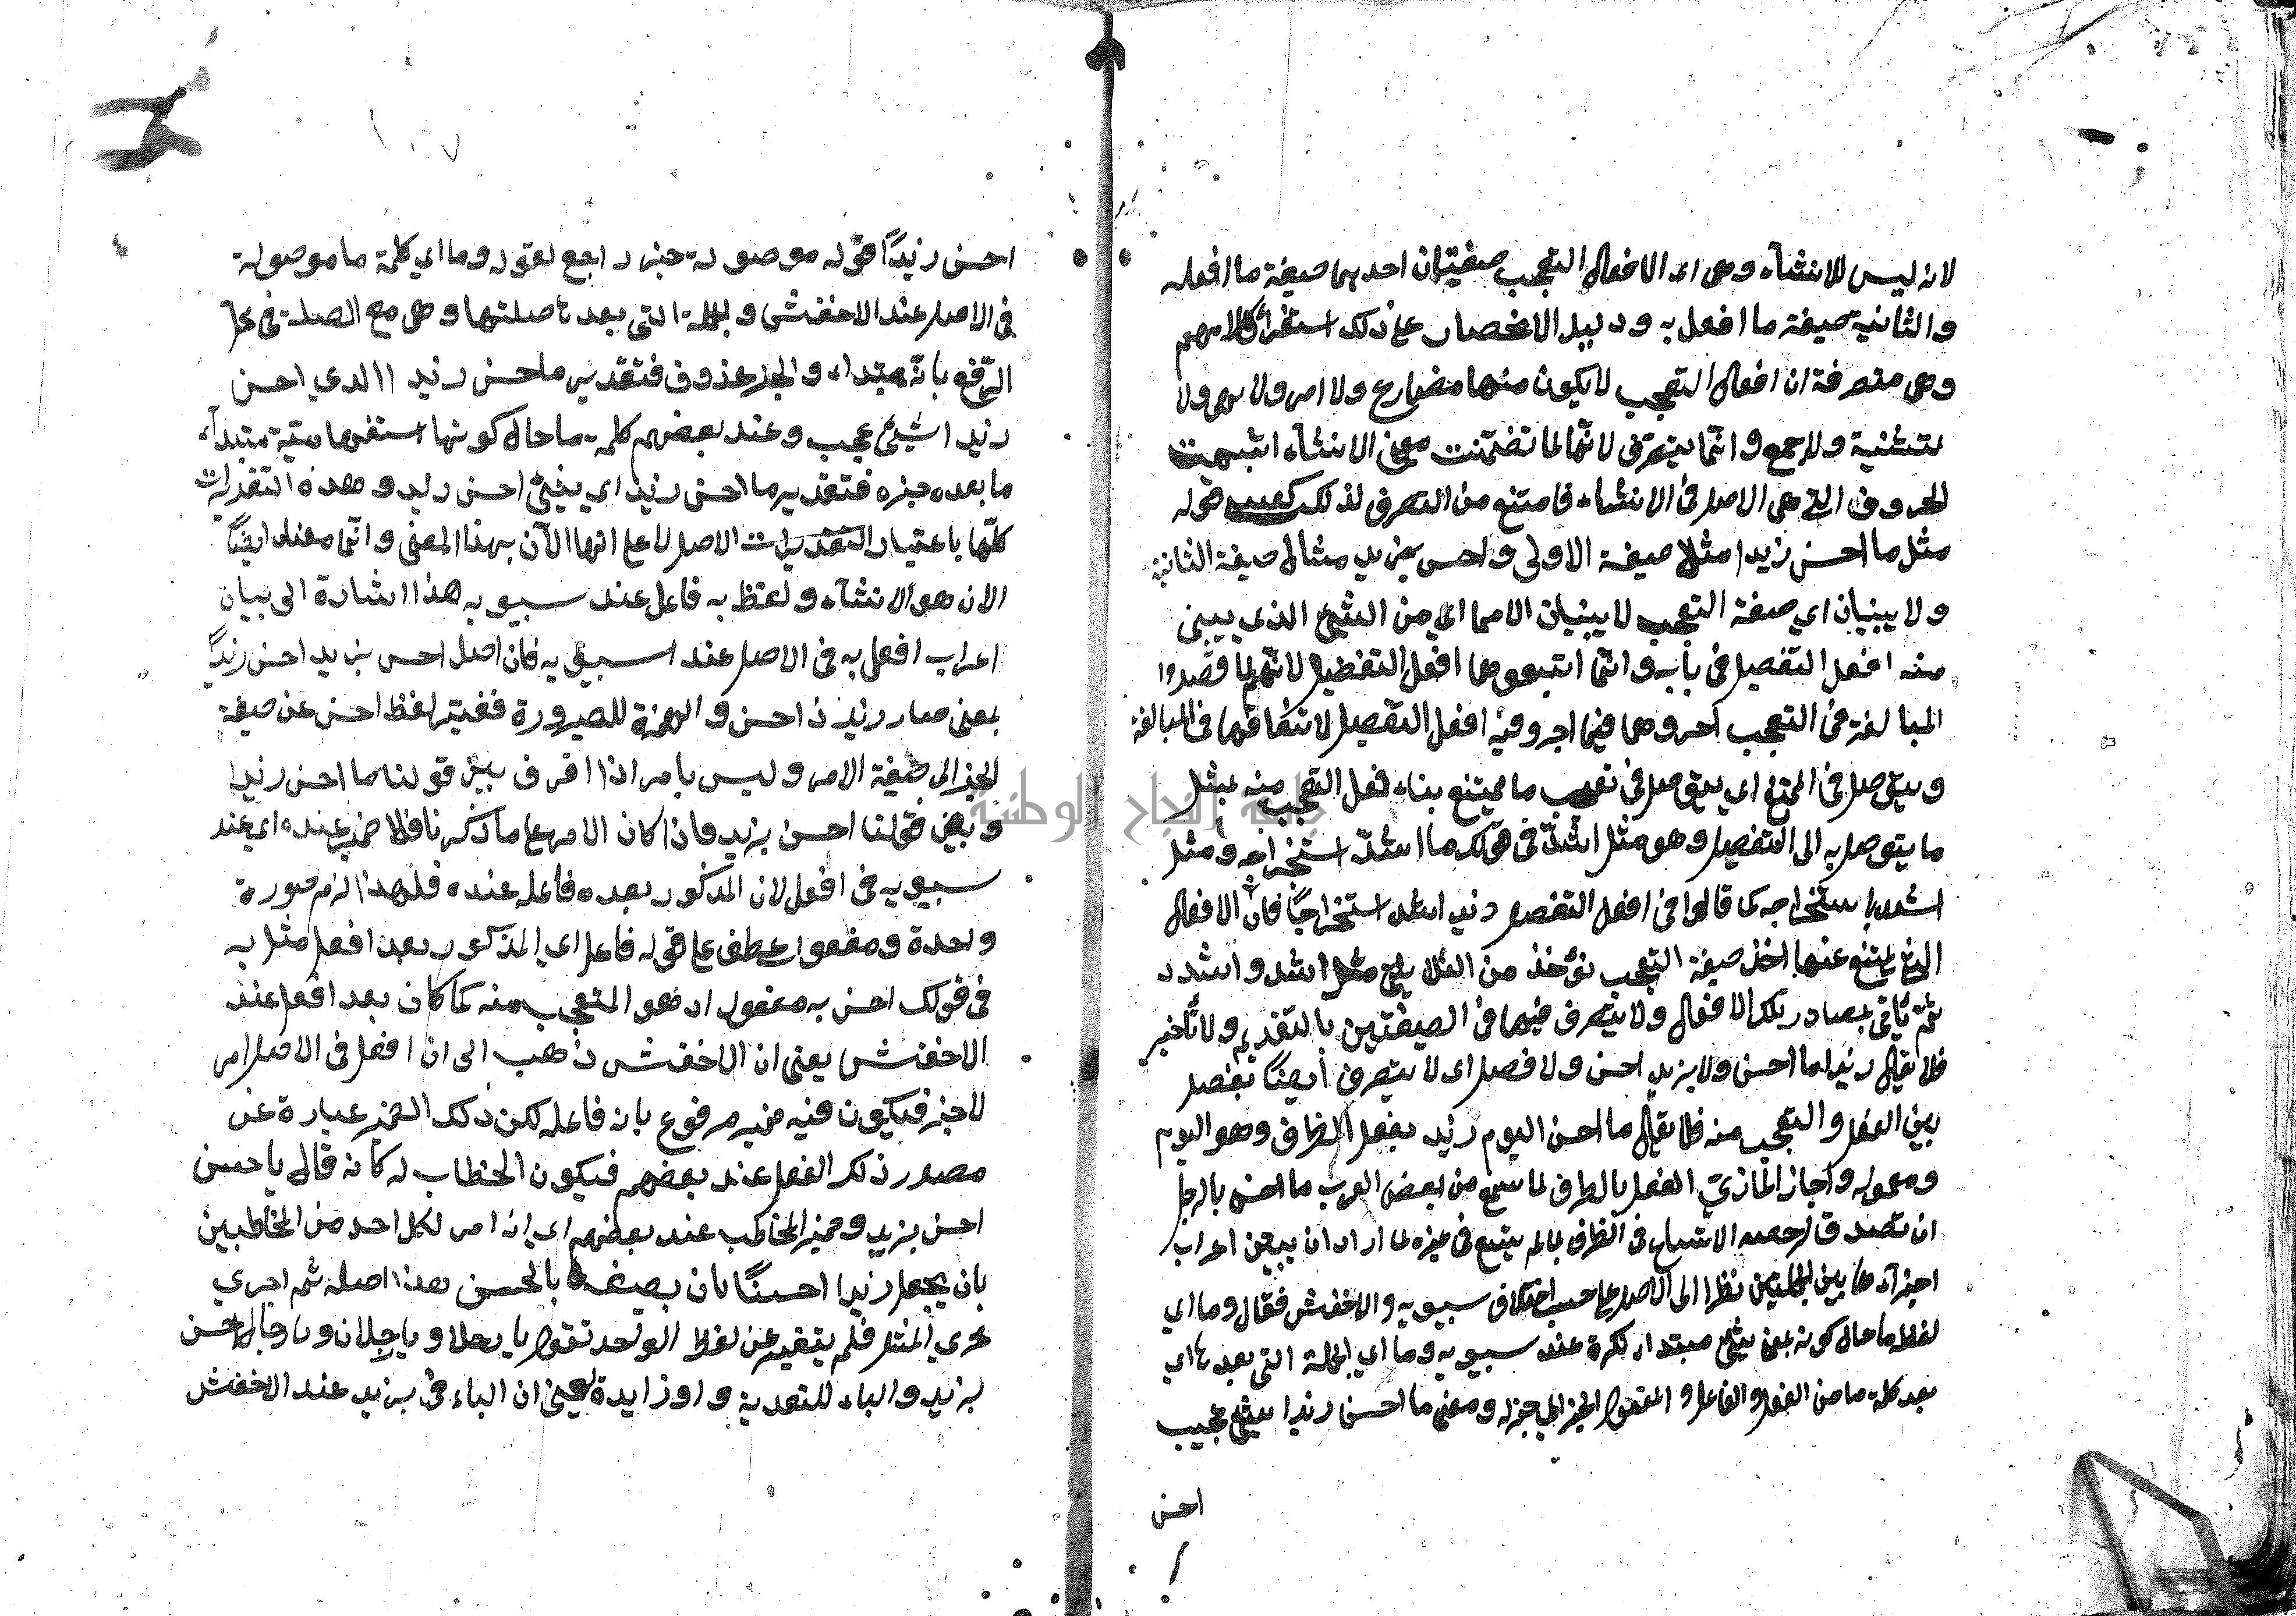 لانه ليس للانشآء وهى اى الافعال التعجب صيغتان احديهما صيغة ما افعله
والثانية صيغة ما افعل به ودليل الانحصار على ذلك استقراء كلامهم
وهى متصرفة ان افعال التعجب لا يكون منها مضارع ولا امر ولا نهى ولا
تثنية ولا جمع وانما يتصرف لانها لما تضمنت معنى الانشآء اشبهت
الحروف التى هى الاصل فى الانشاء فامتنع من التصرف لذلك قوله
مثل ما احسن زيدا مثلا صيغة الاولى واحسن بزيد مثال صيغة الثانية
ولا يبنيان اي صيغة التعجب لا يبنيان الا مما اى من الشيئ الذى يبنى
منه افعل التفصيل فى بابه وانما اتبعوهما افعل التفضيل لانهم لما قصدوا
المبالغة فى التعجب اجروهما فيما اجروفيه افعل التفصيل لاتفاقهما فى المبالغة
ويتوصل فى الممتنع اى يتوصل فى تعجب ما يمتنع بناء فعل التعجب منه بمثل
ما يتوصل به الى التفصيل وهو مثل اشدّ فى قولك ما اشدّ استخراجه ومثل
اشدد باستخراجه كما قالوا فى افعل التفصيل زيد اشد استخراجًا فان الافعال
التى يمتنع عنها اخذ صيغة التعجب تؤخذ من الثلاثى مثل اشد واشدد
ثم تأتى بمصادر تلك الافعال ولا يتصرف فيهما فى الصيغتين بالتقديم ولا تأخير
فلا يقال زيدا ما احسن ولا بزيد احسن ولا فصل اى لا يتصرف أيضًا بفصل
بين الفعل والتعجب منه فلا يقال ما احسن اليوم زيد بفعل الظرف وهو اليوم
ومعموله واجاز المازنيّ الفصل بالظرف لما سمع من بعض العرب ما احسن بالرجل
ان تصدق لرخصه الاتساع فى الظرف لما لم يتسع فى غيره لما اراد ان يبين اعراب
اجزآءها بين الجملتين نظرا الى الاصل على حسب اختلاف سيبويه والاخفش فقال وما اي
لفظ ما حال كونه بمعنى شيئ مبتداء نكرة عند سيبويه وما اي الجملة التى بعدها اي
بعد كلمة ما من الفعل والفاعل والمفعول الخبر اي خبره ومعنى ما احسن زيدا شيئ عجيب
احسن
احسن زيدًا قوله موصولة خبر راجع لقوله وما اي كلمة ما موصولة
فى الاصل عند الاخفش والجملة التى بعدها صلتها وهى مع الصلة فى محل
الرّفع بانّه مبتداء والخبر محذوف فتقديره ما حسن زيد ا الذي احسن
زيد ا شيئ عجيب وعند بعضهم كلمة ما حال كونها استفهاميّة مبتدأ
ما بعده خبره فتقديره ما احسن زيد اى شيئ احسن زيد وهذه التقديرات
كلّها باعتبار التقديرات الاصل لا على انها الآن بهذا المعنى وانما معناه ايضًا
الان هو الانشآء ولفظ به فاعل عند سيبويه هذا اشارة الى بيان
اعراب افعل به فى الاصل عند سيبويه فان اصل احسن بزيد احسن زيدًا
بمعنى صار زيد ذا حسن والهمزة للصيرورة فغيّر لفظ احسن عن صيغة
الخبر الى صيغة الامر وليس بامر اذا افرق بين قولنا ما احسن زيدا
وبين قولنا احسن بزيد فاذا كان الامر على ما ذكرنا فلا ضمير عنده اى عند
سيبويه فى افعل لان المذكور بعده فاعله عنده فلهذا لزم صورة
واحدة ومفعول عطف على قوله فاعل اي المذكور بعد افعل مثل به
فى قولك احسن به مفعول اذ هو المتعجب منه كما كان بعد افعل عند
الاخفش يعنى ان الاخفش ذهب الى ان افعل فى الاصل امر
لا خبر فيكون فيه ضمير مرفوع بانه فاعله لكن ذلك الضمير عبارة عن
مصدر ذلك الفعل عند بعضهم فيكون الخطاب له كانه قال يا حسن
احسن بزيد وضمير المخاطب عند بعضهم اى انه امر لكل احد من المخاطبين
بان يجعل زيدا احسنًا بان يصفه بالحسن هذا اصله ثم اجري
مجري المثل فلم يتغير عن لفظ الواحد تقول يا رجلا ويا رجلان ويا رجال احسن
بزيد والباء للتعدية واو زايدة يعنى ان الباء فى بزيد عند الاخفش
جامعة النجاح الوطنية